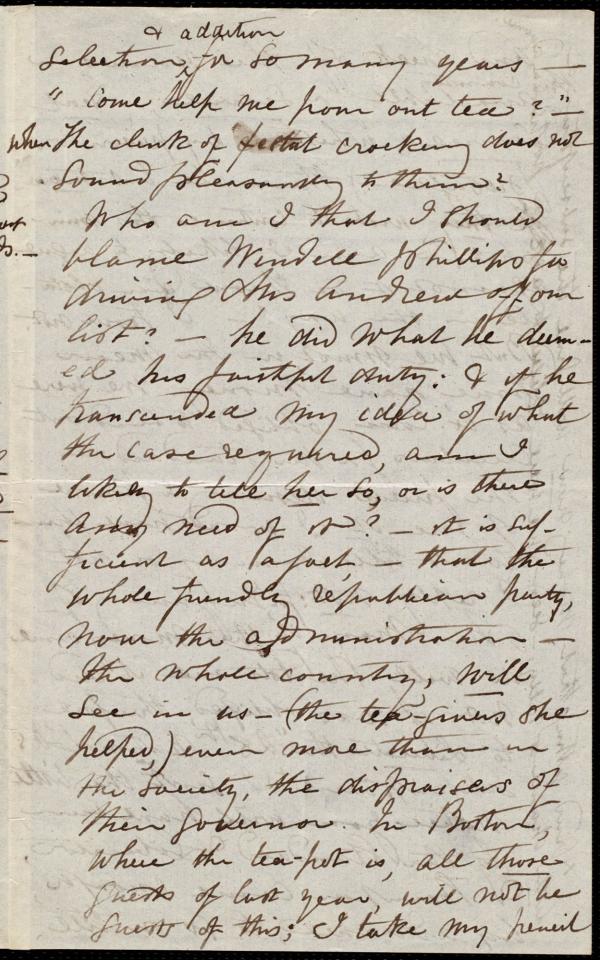 & addition
selection, for so many years —
"Come help me pour out tea?" —
when the clink of festal crockery does not
sound pleasantly to them?
Who am I that I should
blame Wendell Phillips for
driving Mrs Andrew off our
list? — he did what he deem-
ed his faithful duty: & if he
transcended my idea of what
the case required, am I
likely to tell her so, or is there
any need of it? — it is suf-
ficient as a fact — that the
whole friendly republican party,
now the administration —
the whole country, will
see in us — (the tea-givers she
helped,) even more than in
the Society, the dispraisers of
their governor. In Boston,
where the tea-pot is, all those
guests of last year, will not be
guests of this; I take my pencil